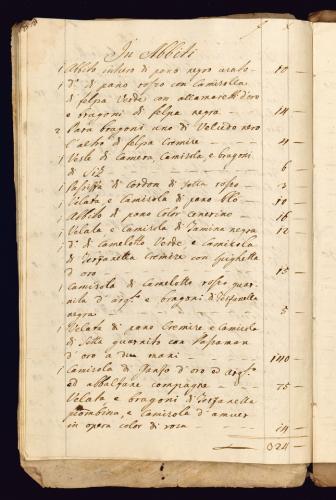 In Abbiti
1 Abbito intiero di pano negro usato - 10 -
1 d.o di pano rosso con Camisolla
di felpa Verde con allamaretti d'oro
e bragoni di felpa negra - 14 -
2 Para bragoni uno di Veludo nero
l'altro di felpa Cremise - 4 -
1 Veste di Camera, Camisola, e bragoni
di - 6 -
1 di Cordon di Setta rosso - 3 -
1 Velata e Camisola di pano blò - 10 -
1 Abbito di pano color Cenerino - 16
1 Velata e Camisola di Stamina negra 12
1 d.o di Camelotto Verde, e Camisola
di Tersanella Cremise con
d'oro - 15 -
1 Camisola di Camelotto rosso guar
nita d'arg.to e bragoni di Tersanella
negra - 5 -
1 Velata di pano Cremise e Camisola
di Setta guarnito con Passaman
d'oro a due mani - 140 -
1 Camisola di d'oro ed arg.to
ed compagne - 75 -
Velata e bragoni di Tersanella
piombina, e Camisola d'amuer
in opera color di rosa - 14 -
324 -